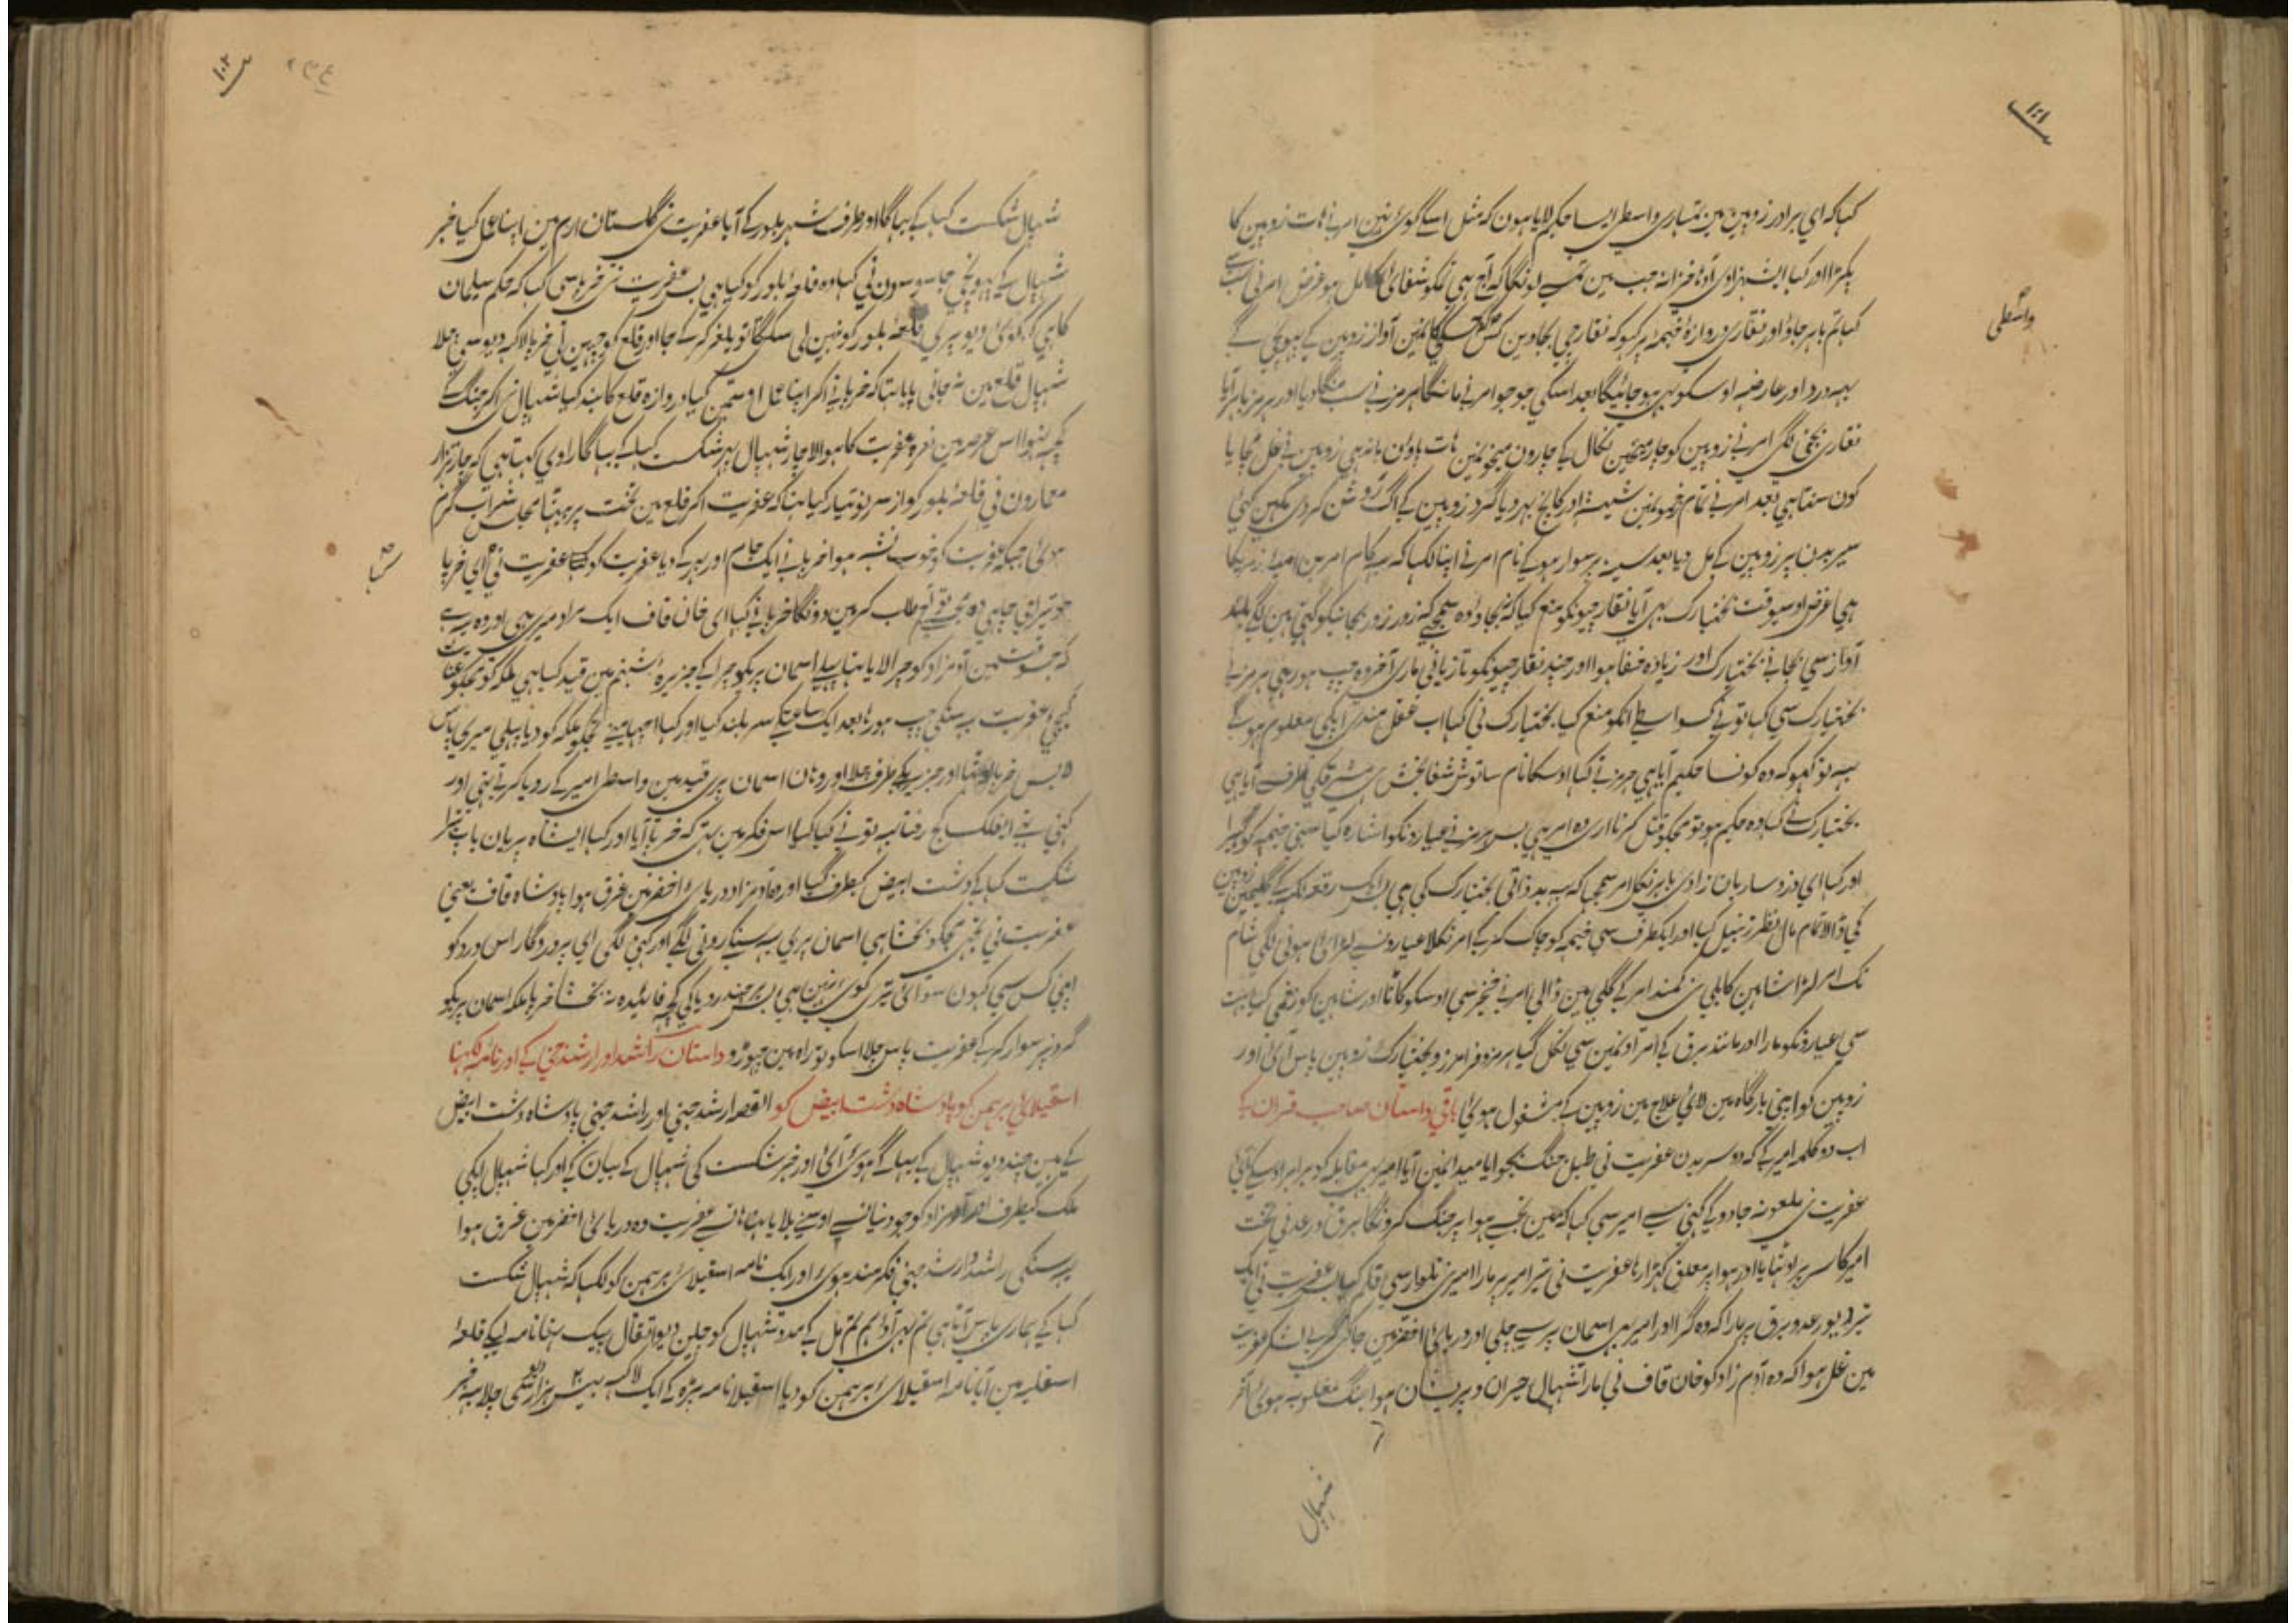 ۱۰۱
کہا کہ ای برادر زوپین مین تمہاری واسطی ایسا حکیم لایا ہون کہ مثل اسکے کوئی نہین امر نے ہات زوپین کا
پکڑا اور کہا ای شہزادی آدہا خزانہ جب مین تمسے لونگا کہ آج ہی تمکو شفای کامل ہو غرض امر نی سب سے
کہا تم باہر جاؤ اور نقاری دروازۂ خیمہ پر کہو کہ نقارچی بجاوین کس کس کی کانمین آواز زوپین کے پہونچی گے
واسطی
یہہ درد اور عارضہ اوسکو بہی ہو جائیگا بعد اسکی جو جو امر نے مانگا ہرمز نے سب منگا دیا اور ہرمز باہر آیا
نقاری بجنی لگی امر نے زوپین کو چار میخین نکال کے چارون میخونمین ہات پاؤن باندہی زوپین نے غل مچایا
کون سنتا ہی بعد امر نے تمام زخمونمین شیشہ اور کانچ بہر دیا گرد زوپین کے آگ روشن کر دی
سیر بدن پر زوپین کے مل دیا بعد سینہ پر سوار ہو کے نام امر نے اپنا لکہا کہ یہ کام امر بن امیہ زمریکا
ہی غرض اوسیوقت بختیارک بہی آیا نقارچیونکو منع کیا کہ نہ بجاؤ وہ سمجہے کہ زور زور بجانیکو کہتی ہین لگے بلند
آواز سی بجانے بختیارک اور زیادہ خفا ہوا اور چند نقارچیونکو تازیانی ماری آخر وہ چپ ہو رہی ہرمز نے
بختیارک سی کہا تو نے کسواسطے انکو منع کیا بختیارک نی کہا اب عقل مندی آپکی معلوم ہوگے
یہہ تو کہو کہ وہ کونسا حکیم آیا ہی ہرمز نے کہا اوسکا نام ساتوش شفا بخش ہی مشرقکی طرف سے آیا ہی
بختیارک نے کہا وہ حکیم ہو تو مجکو قتل کرنا اری وہ امر ہی بس ہرمز نے عیارونکو اشارہ کیا سبنی خیمہ کو گہیرا
اور کہا ای دزد ساربان زادی باہر نکل امر سمجہا کہ یہ بد ذاتی بختیارک کی ہی پس ایک رقعہ لکہہ کے گلیمین زوپین
کی ڈالا تمام مال نظر زنبیل کیا اور ایکطرف سی خیمہ کو چاک کر کے امر نکلا عیارونسے لڑائی ہونی لگی شام
تک امر لڑا شاہین کابلی نی کمند امر کے گلی مین ڈالی امر نے خنجر سی اوسکو کاٹا اور شاہین کو زخمی کیا بہت
سی عیارونکو مارا اور مانند برق کے امر اونمین سی نکل گیا ہرمز و فرامرز و بختیارک زوپین پاس آئی اور
زوپین کو اپنی بارگاہ مین لائی علاج مین زوپین کے مشغول ہوئی باقی داستان صاحب قران کے
اب دو کلمہ امیر کے کہ دوسر یدن عفریت نی طبل جنگ بجوایا میدانمین آیا امیر بہی مقابلہ کو برابر اوسکے آئی
عفریت نی ملعونہ جادو کے کہنی سے امیر سی کہا کہ مین تجسے ہوا پر جنگ کرونگا برق و رعد نی تخت
امیر کا سر پر اوٹہایا اور ہوا پر معلق کہڑا رہا عفریت نی تیر امیر پر مارا امیر نی تلوار سی قلم کیا عفریت نی ایک
تیر دیو رعد و برق پر مارا کہ وہ گرا اور امیر بہی اسمان پر سے چلی اور دریائی اخضر مین جا کی گری لشکر عفریت
مین غل ہوا کہ وہ آدم زاد کو خان قاف نی مارا شہپال حیران و پریشان ہوا جنگ مغلوبہ ہوئی آخر
شہپال
۱۰۲
شہپال شکست کہا کے بہاگا اور طرف شہر بلور کے آیا عفریت نی گلستان ارم مین اپنا عمل کیا خبر
شہپال کے پہونچی جاسوسون نی کہا وہ قلعۂ بلور کو گیا ہی پس عفریت نی خریا سی کہا کہ حکم سلیمان
کا ہی کہ کوئی دیو پری قلعۂ بلور کو نہین لی سکیگا تو یلغر کر کے جا اور قلع کو چہین لی خریا لاکہہ دیو سی چلا
شہپال قلع مین نہ جانی پایا تہا کہ خریا نے آکر اپنا عمل اوسمین کیا دروازہ قلع کا بند کیا شہپال نی آکر جنگ کے
کچہ نہوا اس عرصہ مین نعرہ عفریت کا ہوا لاچار شہپال پہر شکست کہا کے بہاگا راوی کہتا ہی کہ چار ہزار
معمارون نی قلعۂ بلور کو از سر نو تیار کیا تہا کہ عفریت آکر قلع مین تخت پر بیٹہا مجلس شراب گرم
ہوئی جبکہ عفریت کو خوب نشہ ہوا خریا نے ایک جام اور بہر کے دیا عفریت کو عفریت نی ای خریا
کہا
جو تیرا جی چاہی وہ مجسے تو طلب کر مین دونگا خریا نے کہا ای خان قاف ایک مراد میری ہی اور وہ یہ ہے
کہ جسوقت مین آدمزاد کو چرا لایا تہا پہلے اسمان پریکو چرا کے جزیرہ شبنم مین قید کیا ہی ملکہ کو مجکو عنایت
کیجئے عفریت یہ سنکی چپ ہو رہا بعد ایک ساعتکے سر بلند کیا اور کہا اچہا مینے تجکو ملکہ کو دیا پہلی میری پاس
لا بس خریا اوٹہا اور جزیریکے طرف چلا اور وہان اسمان پری قید مین واسطی امیر کے رویا کرتے تہی اور
کہتی تہی ای فلک کج رفتار یہ تو نے کیا کیا اس فکر مین تہی کہ خریا آیا اور کہا ای شاہ پریان باپ تیرا
شکست کہا کے دشت ابیض کیطرف گیا اور آدمزاد دریائ اخضر مین غرق ہوا پادشاہ قاف یعنی
عفریت نی تجہی مجکو بخشا ہی اسمان پری یہ سنکے رونی لگے اور کہنی لگی ای پروردگار اس درد کو
اپنی کس سی کہون سوائی تیری کوئی نہین ہی بس ہرچند رویا کی کچہ فائیدہ نہ بخشا خریا ملکہ اسمان پریکو
گردنپر سوار کر کے عفریت پاس چلا اسکو تو راہ مین چہوڑو داستان راشد اور ارشد جنی کے اور نامہ لکہنا
اسقیلائی برہمن کو پادشاہ دشت ابیض کو القصہ ارشد جنی اور راشد جنی پادشاہ دشت ابیض
کے ہین چند دیو شہپال کے بہاگے ہوئے آئی اور خبر شکست کی شہپال کے بیان کے اور کہا شہپال آپکی
ملک کیطرف اور آدمزاد کو جو دنیا سے اوسنے بلایا تہا ہاتسے عفریت وہ دریائ اخضر مین غرق ہوا
یہ سنکی راشد و ارشد جنی فکرمند ہوئے اور ایک نامہ اسقیلائی برہمن کو لکہا کہ شہپال شکست
کہا کے ہماری پاس آتا ہی تم بہی آؤ ہم تم مل کے مدد شہپال کو چلین دیو پیک نامہ لیکے قلعۂ
اسقلیہ مین آیا نامہ اسقیلائ برہمن کو دیا اسقیلا نامہ پڑہ کے ایک لاکہہ بیس ہزار دیو سی چلا یہ خبر